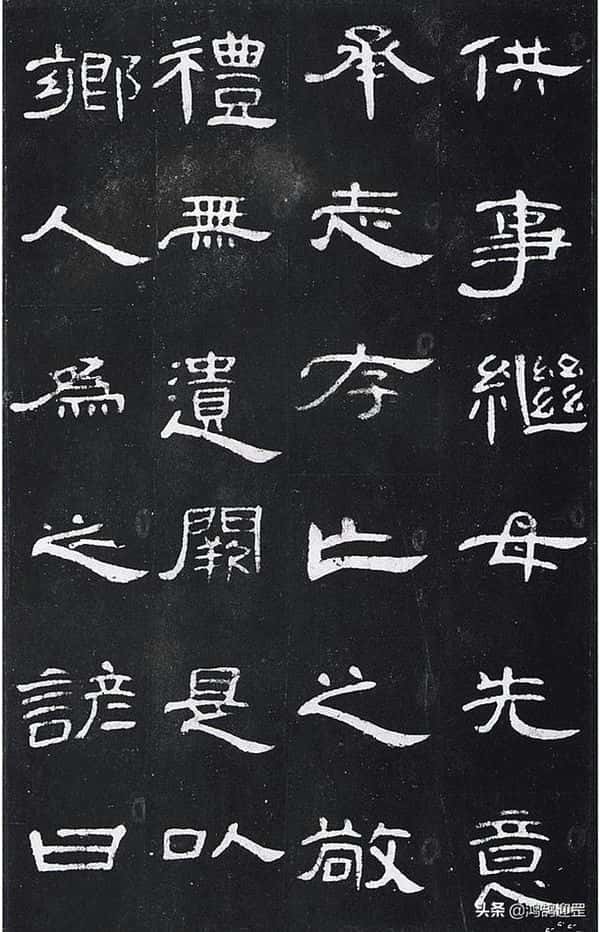 供事繼母先意
承志存亡之敬
禮無遺闕是以
鄉人為之諺曰
头条@鸿鹄柳罡